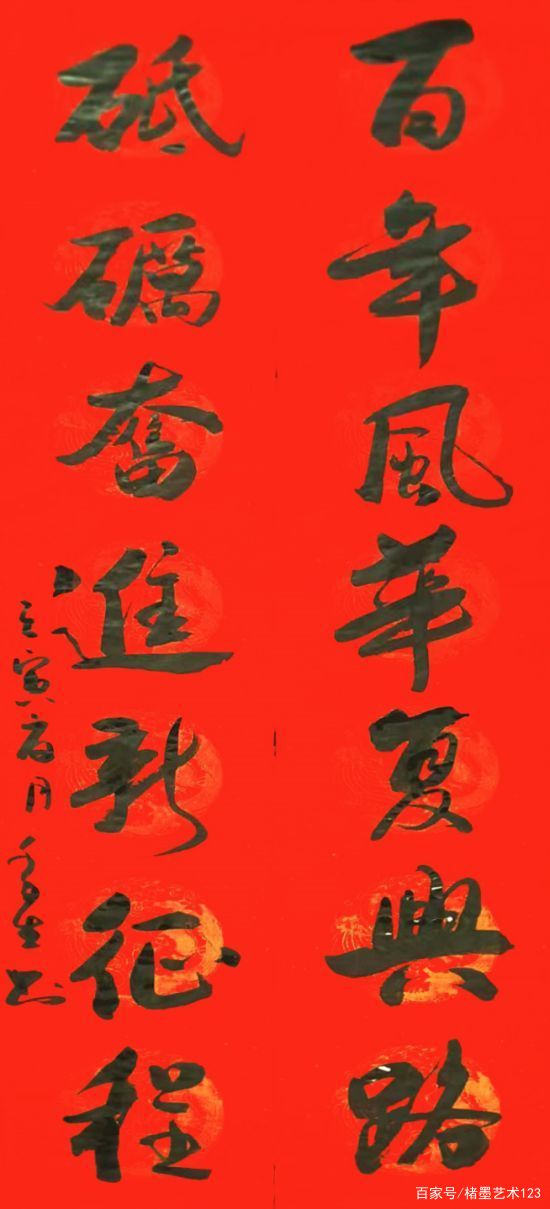 百年風華复興路
砥礪奮進新征程
壬寅月书
百家号/楮墨艺术123